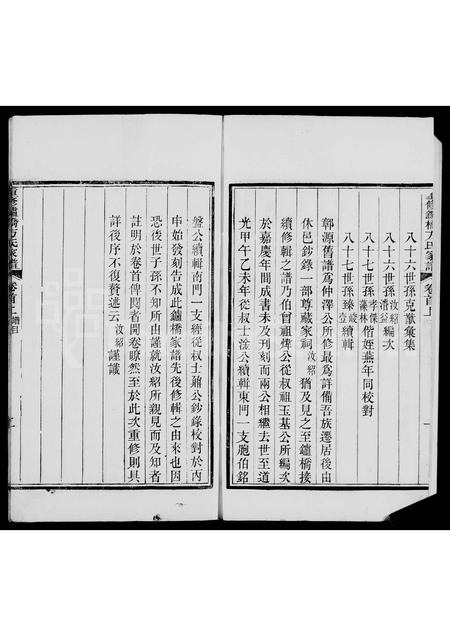 重修鑪橋方氏家譜 卷首上
八十六世孫克猷彙集
八十六世孫汝紹濟益編次
八十七世孫孝保藻林偕姪燕年同校對
八十七世孫臻峻臻壹續輯
郭源舊譜爲仲澤公所修最爲詳備吾族遷居後由
休邑鈔錄一部尊藏家祠汝紹猶及見之至鑪橋接
續修輯之譜乃伯曾祖煒公從叔祖玉基公所編次
於嘉慶年間成書未及刊刻而兩公相繼去世至道
光甲午乙未年從叔士淦公續輯東門一支胞伯銘
盤公續輯南門一支經從叔士鼐公鈔錄校對於丙
申始發刻告成此鑪橋家譜先後修輯之由來也因
恐後世子孫不知所由謹就汝紹所親見而及知者
註明於卷首俾閱者開卷瞭然至於此次重修則具
詳後序不復贅述云汝紹謹識
重修鑪橋方氏家譜 卷首上 譜目